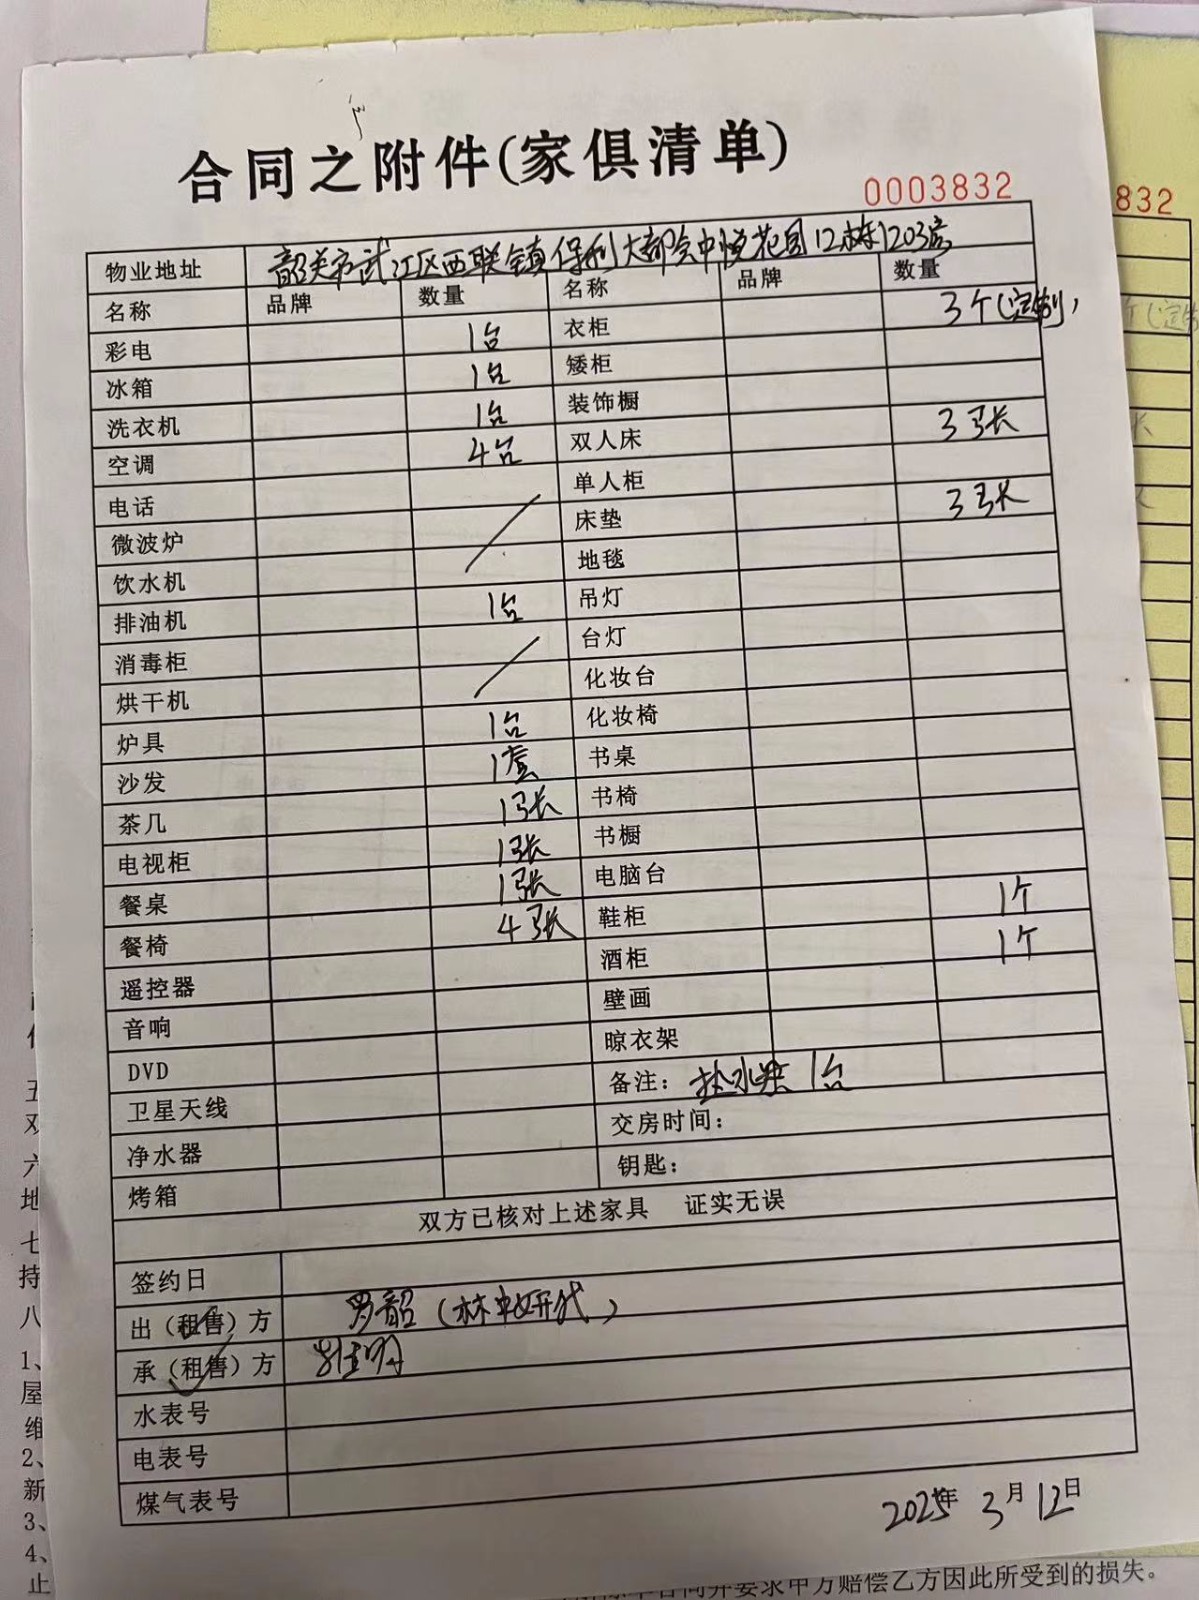 合同之附件(家俱清单)
0003832
832
物业地址 韶关市武江区西联镇保利大都会中悦花园12栋1203房
名称 品牌 数量 名称 品牌 数量
彩电 1台 衣柜 3个(定制)
冰箱 1台 矮柜
洗衣机 1台 装饰橱
空调 4台 双人床 3张
电话 单人柜
微波炉 床垫 3张
饮水机 地毯
排油机 1台 吊灯
消毒柜 台灯
烘干机 化妆台
炉具 1台 化妆椅
沙发 1套 书桌
茶几 1张 书椅
电视柜 1张 书橱
餐桌 1张 电脑台
餐椅 4张 鞋柜 1个
遥控器 酒柜 1个
音响 壁画
DVD 晾衣架
卫星天线 备注: 1台
净水器 交房时间:
烤箱 钥匙:
双方已核对上述家具 证实无误
签约日
出(租售)方 罗韶(林 代)
承(租售)方
水表号
电表号
煤气表号
2025年3月12日
五
双
六
地
七
持
八
1、
屋
维
2、
新
3、
4、
止
并要求甲方赔偿乙方因此所受到的损失。